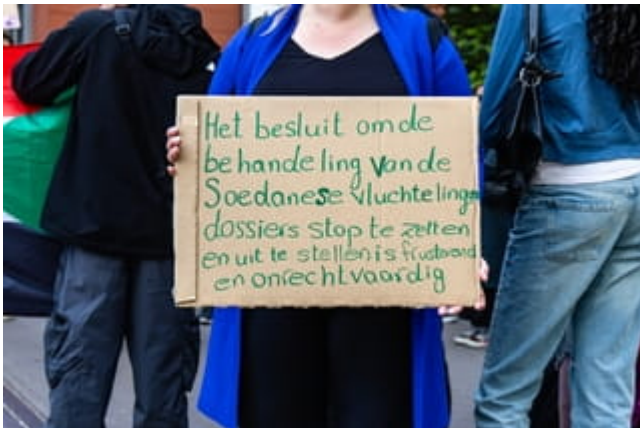 Het besluit om de
behandeling van de
Soedanese vluchtelingen
dossiers stop te zetten
en uit te stellen is frustrerend
en onrechtvaardig